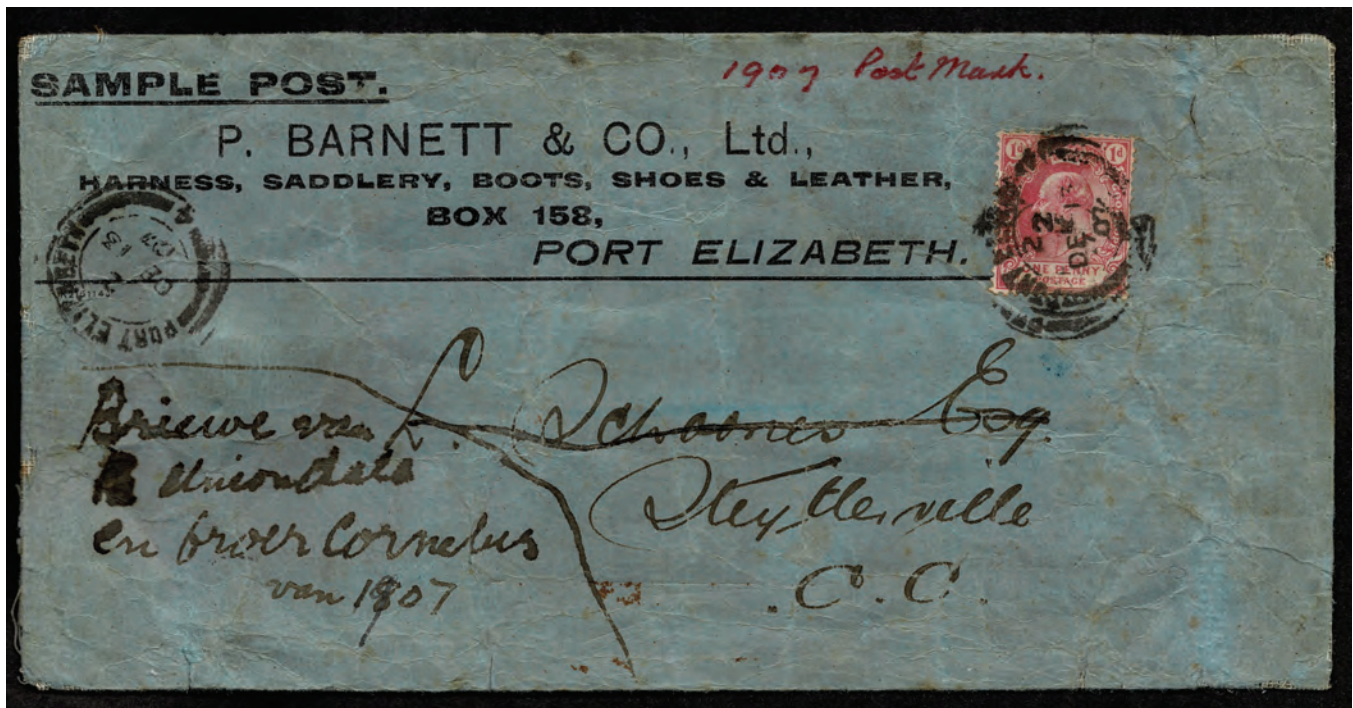 SAMPLE POST.
1907 Post Mark.
P. BARNETT & CO., Ltd.,
HARNESS, SADDLERY, BOOTS, SHOES & LEATHER,
BOX 158,
PORT ELIZABETH.
1d 1d
22
DE 13
07
ONE PENNY
POSTAGE
PORT ELIZABETH
2
DE 13
07
L. Schoones Esq.
Steytlerville
C.C.
Briewe van
Uniondale
en broer Cornelus
van 1907